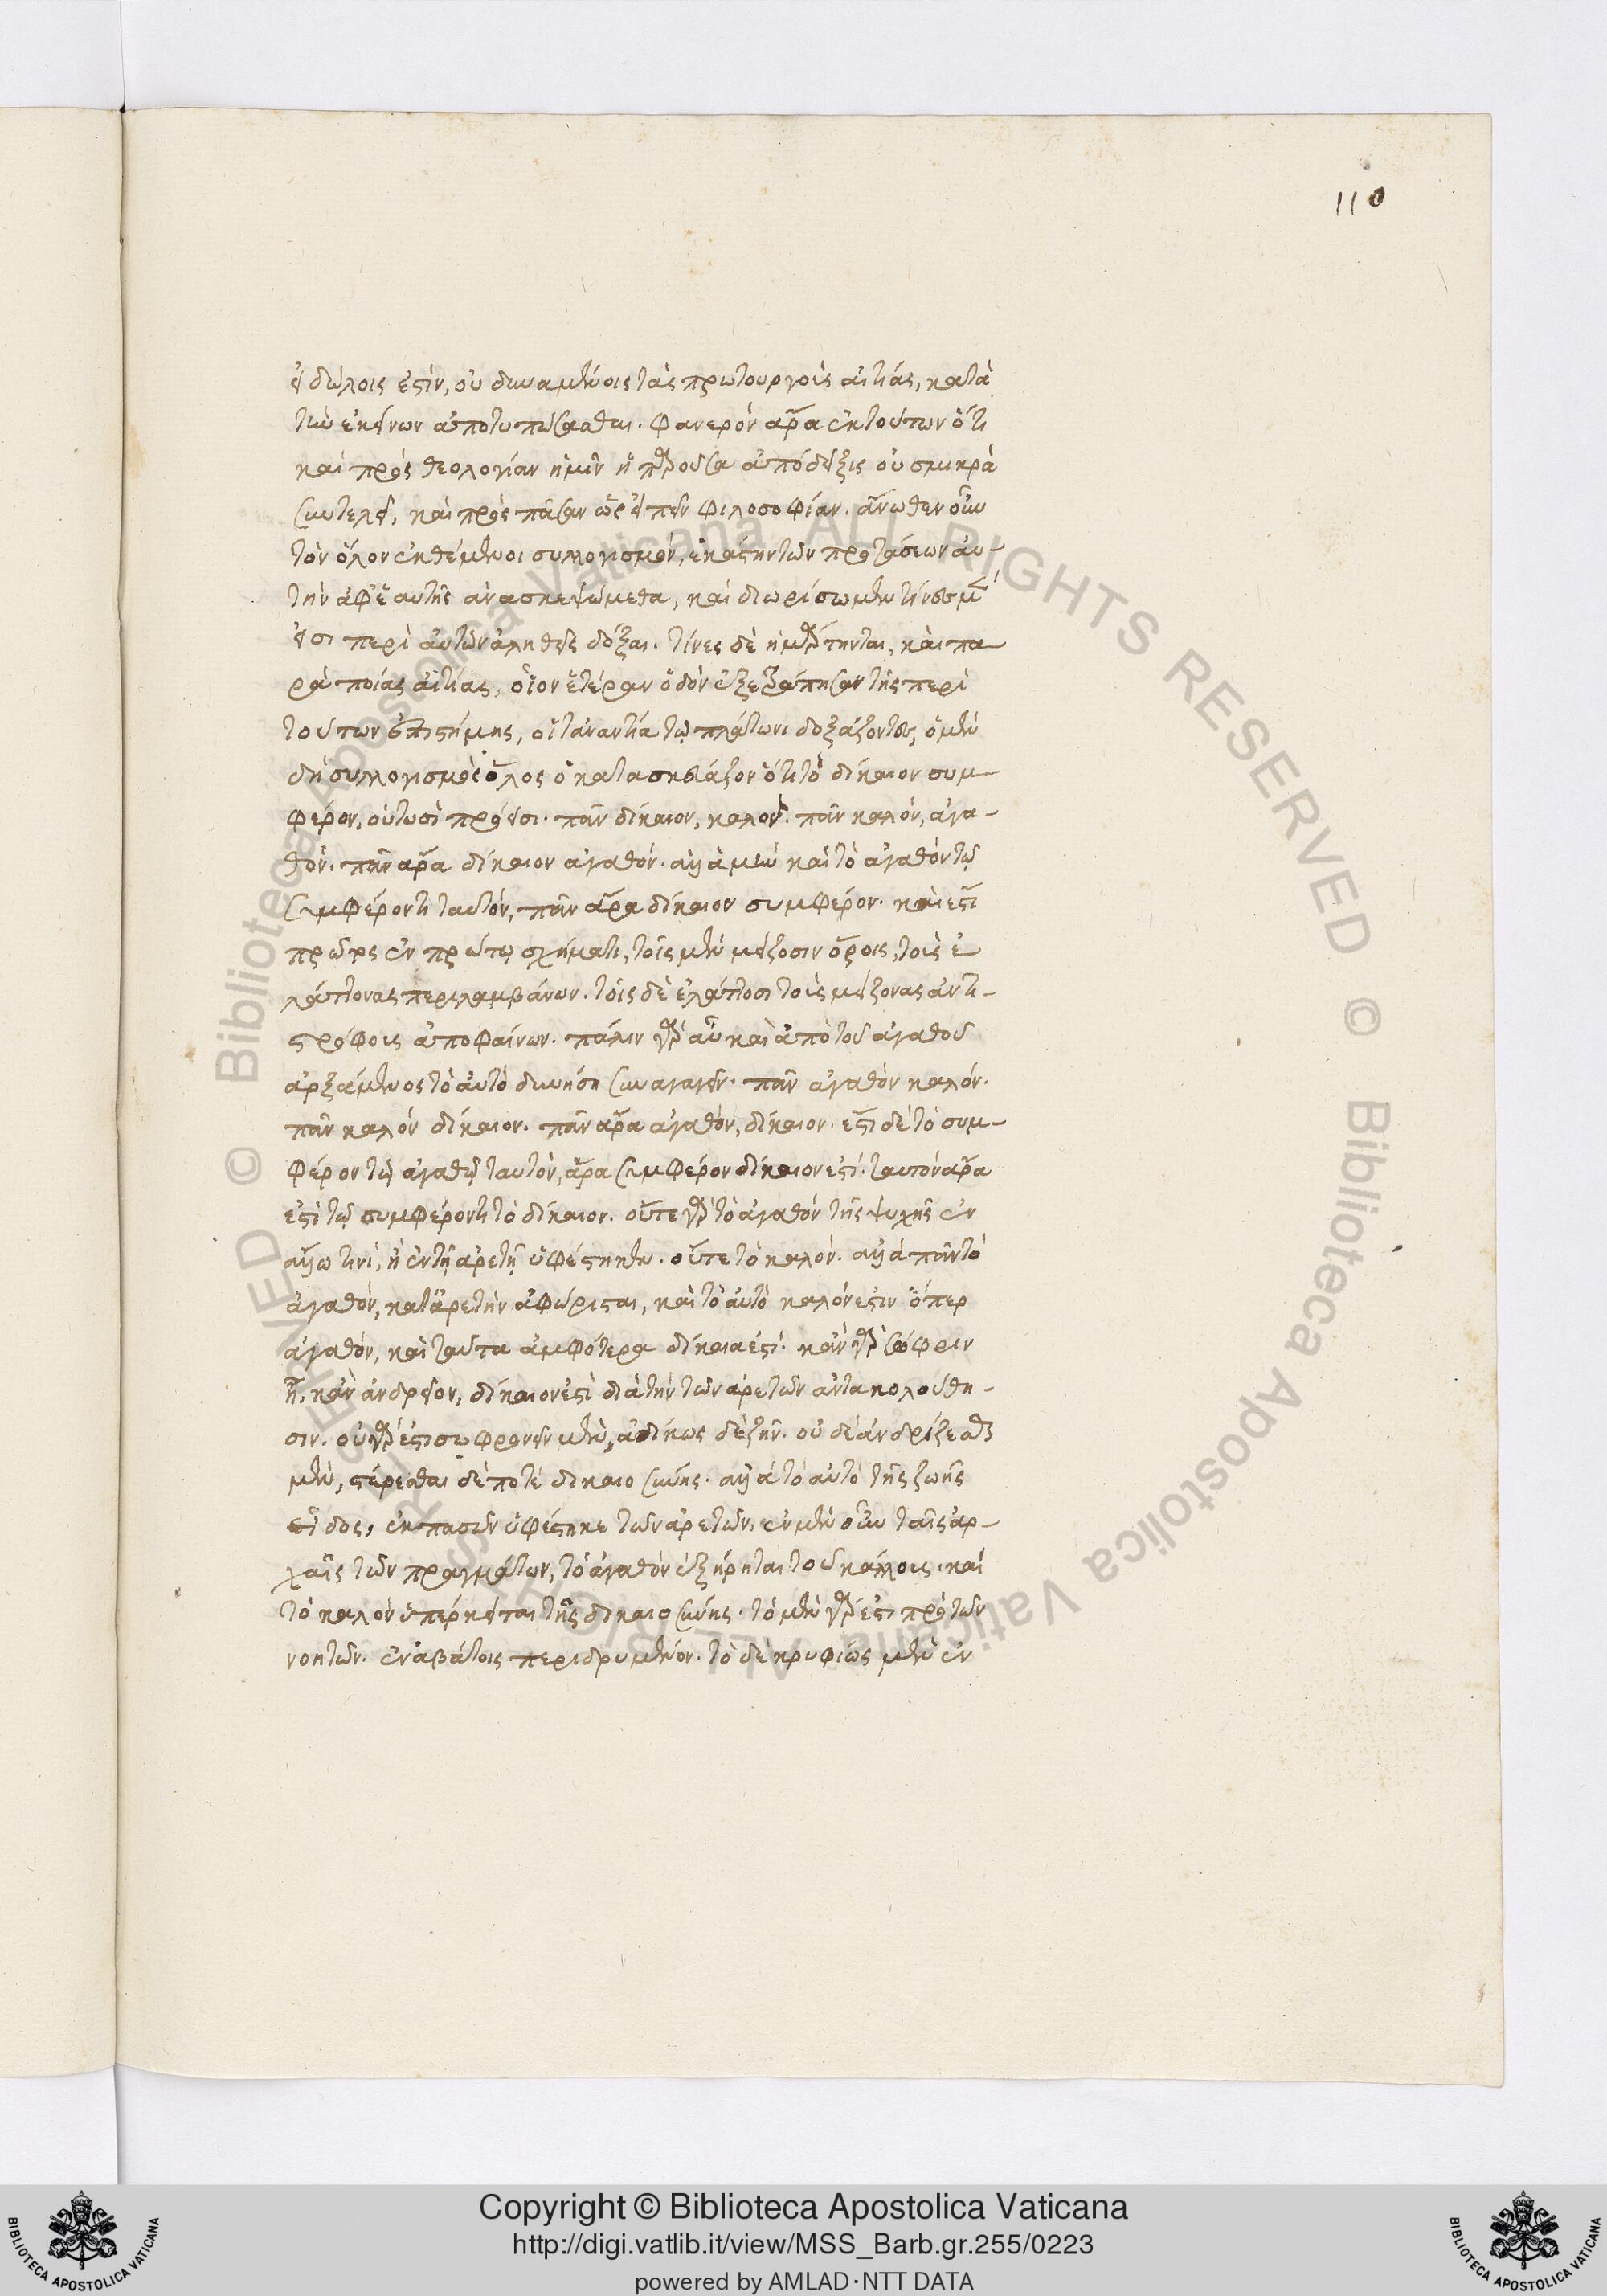 110
εἰδώλοις ἐστὶν, οὐ δυναμένοις τὰς πρωτουργοὺς αἰτίας, κατὰ
τῶν ἐκείνων ἀποτυπώσασθαι. φανερὸν ἄρα ἐκ τούτων ὅτι
καὶ πρὸς θεολογίαν ἡμῖν ἡ παροῦσα ἀπόδειξις οὐ σμικρὰ
συντελεῖ, καὶ πρὸς πᾶσαν ὡς εἰπεῖν φιλοσοφίαν. ἄνωθεν οὖν
τὸν ὅλον ἐκθέμενοι συλλογισμὸν, ἑκάστην τῶν προτάσεων αὐ-
τὴν ἀφ' ἑαυτῆς ἀνασκεψώμεθα, καὶ διωρίσωμεν τίνες μὲν
εἰσι περὶ αὐτῶν ἀληθεῖς δόξαι. τίνες δὲ ἡμάρτηνται, καὶ πα-
ρὰ ποίας αἰτίας, οἷον ἑτέραν ὁδὸν ἐξετράπησαν τῆς περὶ
τούτων ἐπιστήμης, οἱ τἀναντία τῷ πλάτωνι δοξάζοντες, ὁ μὲν
δὴ συλλογισμὸς ὅλος ὁ κατασκευάζον ὅτι τὸ δίκαιον συμ-
φέρον, οὑτωσὶ πρόεισι. πᾶν δίκαιον, καλόν. πᾶν καλὸν, ἀγα-
θόν. πᾶν ἄρα δίκαιον ἀγαθόν. ἀλλὰ μὴν καὶ τὸ ἀγαθὸν τῷ
συμφέροντι ταὐτόν, πᾶν ἄρα δίκαιον συμφέρον. καὶ ἔστι
πρώτως ἐν πρώτῳ σχήματι, τοῖς μὲν μείζοσιν ὅροις, τοὺς ἐ
λάττονας περιλαμβάνων. τοῖς δὲ ἐλάττοσι τοὺς μείζονας ἀντι-
στρόφους ἀποφαίνων. πάλιν γὰρ αὖ καὶ ἀπὸ τοῦ ἀγαθοῦ
ἀρξάμενος τὸ αὐτὸ δυνήση συναγαγεῖν. πᾶν ἀγαθὸν καλόν.
πᾶν καλὸν δίκαιον. πᾶν ἄρα ἀγαθὸν, δίκαιον. ἔστι δὲ τὸ συμ-
φέρον τῷ ἀγαθῷ ταυτὸν, ἄρα συμφέρον δίκαιον ἐστί. ταυτὸν ἄρα
ἐστὶ τῷ συμφέροντι τὸ δίκαιον. οὔτε γὰρ τὸ ἀγαθὸν τῆς ψυχῆς ἐν
ἄλλω τινὶ, ἢ ἐν τῇ ἀρετῇ ὑφέστηκεν. οὔτε τὸ καλόν. ἀλλὰ πᾶν τὸ
ἀγαθὸν, κατ' ἀρετὴν ἀφώρισται, καὶ τὸ αὐτὸ καλόν ἐστιν ὅπερ
ἀγαθὸν, καὶ ταῦτα ἀμφότερα δίκαια ἐστί. κἂν γὰρ σῶφρον
ᾖ, κἂν ἀνδρεῖον, δίκαιον ἐστὶ διὰ τὴν τῶν ἀρετῶν ἀντακολούθη-
σιν. οὐ γὰρ ἔστι σωφρονεῖν μὲν, ἀδίκως δὲ ζῆν. οὐδὲ ἀνδρίζεσθαι
μὲν, στέρεσθαι δέ ποτὲ δικαιοσύνης. ἀλλὰ τὸ αὐτὸ τῆς ζωῆς
εἶδος, ἐκ πασῶν ὑφέστηκε τῶν ἀρετῶν. ἐν μὲν οὖν ταῖς ἀρ-
χαῖς τῶν πραγμάτων, τὸ ἀγαθὸν ἐξήρηται τοῦ κάλλους. καὶ
τὸ καλὸν ὑπέρκειται τῆς δικαιοσύνης. τὸ μὲν γὰρ ἐστι πρὸ τῶν
νοητῶν. ἐν ἀβάτοις περιδρυμένον. τὸ δὲ κρυφίως μὲν ἐν
Copyright © Biblioteca Apostolica Vaticana
http://digi.vatlib.it/view/MSS_Barb.gr.255/0223
powered by AMLAD·NTT DATA